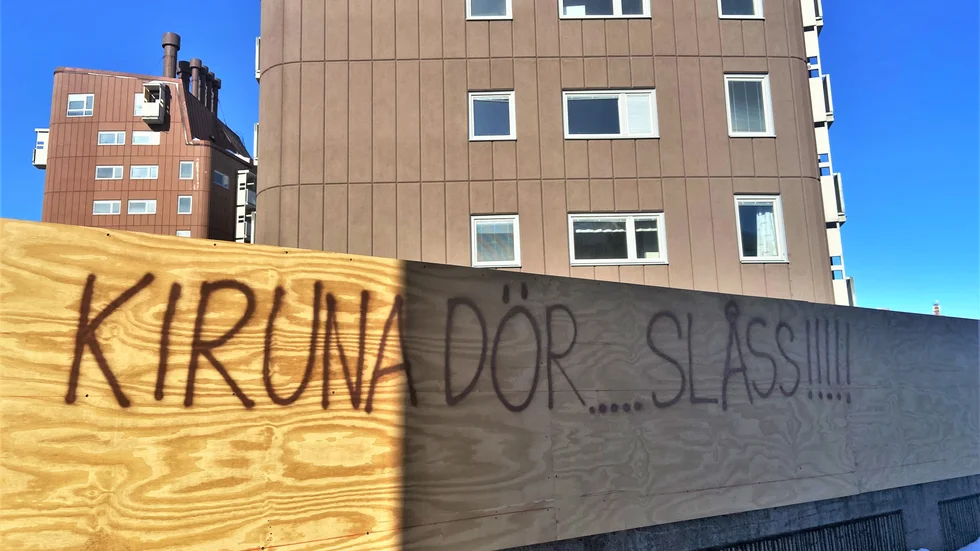 KIRUNA DÖR..... SLÅSS!!!!!